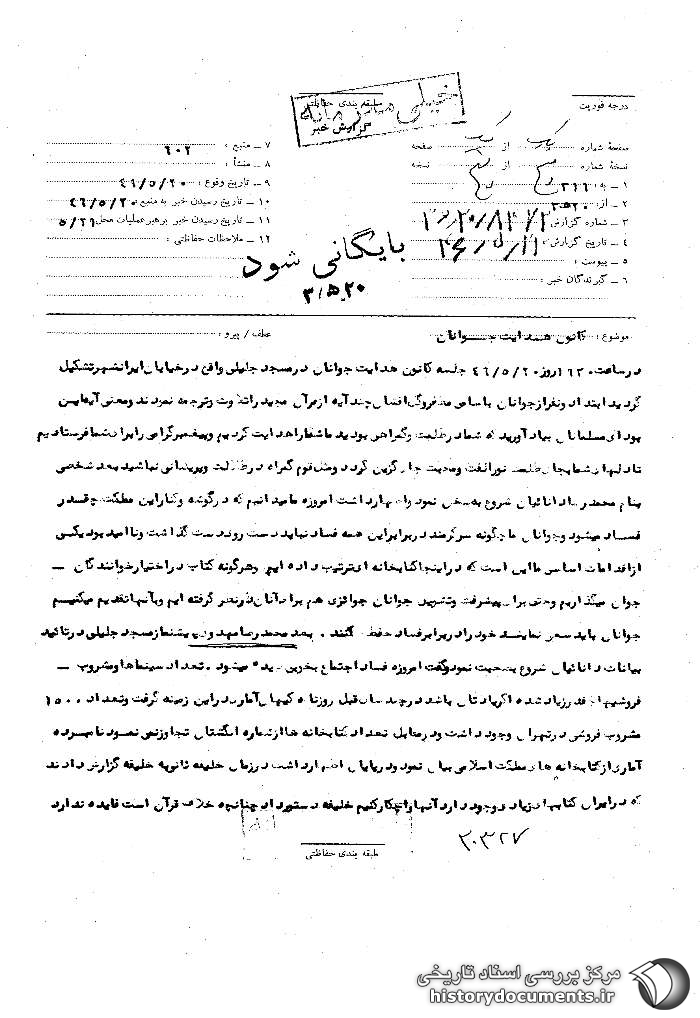 درجه فوریت
طبقه بندی حفاظتی
خیلی محرمانه
گزارش خبر
صفحهٔ شماره یک از یک صفحه
نسخهٔ شماره از نسخه
۱ ـ به : ۳۱۱
۲ ـ از : ۲۰ﻫ۳
۳ ـ شماره گزارش
۴ ـ تاریخ گزارش
۵ ـ پیوست :
۶ ـ گیرندگان خبر :
۷ ـ منبع : ۶۰۲
۸ ـ منشأ :
۹ ـ تاریخ وقوع : ۴۶/۵/۲۰
۱۰ ـ تاریخ رسیدن خبر به منبع ۴۶/۵/۲۰
۱۱ ـ تاریخ رسیدن خبر برهبر عملیات محل ۵/۲۱
۱۲ ـ ملاحظات حفاظتی :
بایگانی شود
موضوع : کانون هدایت جوانان
عطف / پیرو :
در ساعت ۱۶۳۰ روز ۴۶/۵/۲۰ جلسه کانون هدایت جوانان در مسجد جلیلی واقع در خیابان ایرانشهر تشکیل
گردید ابتدا دو نفر از جوانان باسامی چند آیه از قرآن مجید را تلاوت و ترجمه نمودند و معنی آیه این
بود ای مسلمانان بیاد آورید که شما در ظلمت و گمراهی بودید ما شما را هدایت کردیم و پیغمبر گرامی را برای شما فرستادیم
تا دلهای شما بجای ظلمت نور الفت و محبت جایگزین گردد و مثل قوم گمراه در ظلالت و پریشانی نباشید بعد شخصی
بنام محمدرضا دانائیان شروع به سخن نمود و اظهار داشت امروزه ما میدانیم که در گوشه و کنار این مملکت چقدر
فساد میشود و جوانان ما چگونه سرگرمند در برابر این همه فساد نباید دست رو دست گذاشت و ناامید بود یکی
از اقدامات اساسی ما این است که در اینجا کتابخانه ای ترتیب داده ایم و هرگونه کتاب در اختیار خوانندگان ـ
جوان میگذاریم و حتی برای پیشرفت و تشویق جوانان جوائزی هم برای آنان در نظر گرفته ایم و بآنها تقدیم میکنیم
جوانان باید سعی نمایند خود را در برابر فساد حفظ کنند . بعد محمدرضا مهدوی پیشنماز مسجد جلیلی در تائید
بیانات دانائیان شروع بصحبت نمود و گفت امروزه فساد اجتماع بخوبی دیده میشود . تعداد سینماها و مشروب ـ
فروشیها چقدر زیاد شده اگر یادتان باشد در چند سال قبل روزنامه کیهان آماری در این زمینه گرفت و تعداد ۱۵۰۰
مشروب فروشی در تهران وجود داشت و در مقابل تعداد کتابخانه ها از شماره انگشتان تجاوز نمی نمود نامبرده
آماری از کتابخانه های مملکت اسلامی بیان نمود و در پایان اظهار داشت در زمان خلیفه ثانی به خلیفه گزارش دادند
که در ایران کتابهای زیادی وجود دارد آنها را چکار کنیم خلیفه دستور داد چنانچه خلاف قرآن است فایده ندارد
۲۰۳۲۷
طبقه بندی حفاظتی
مرکز بررسی اسناد تاریخی
historydocuments.ir